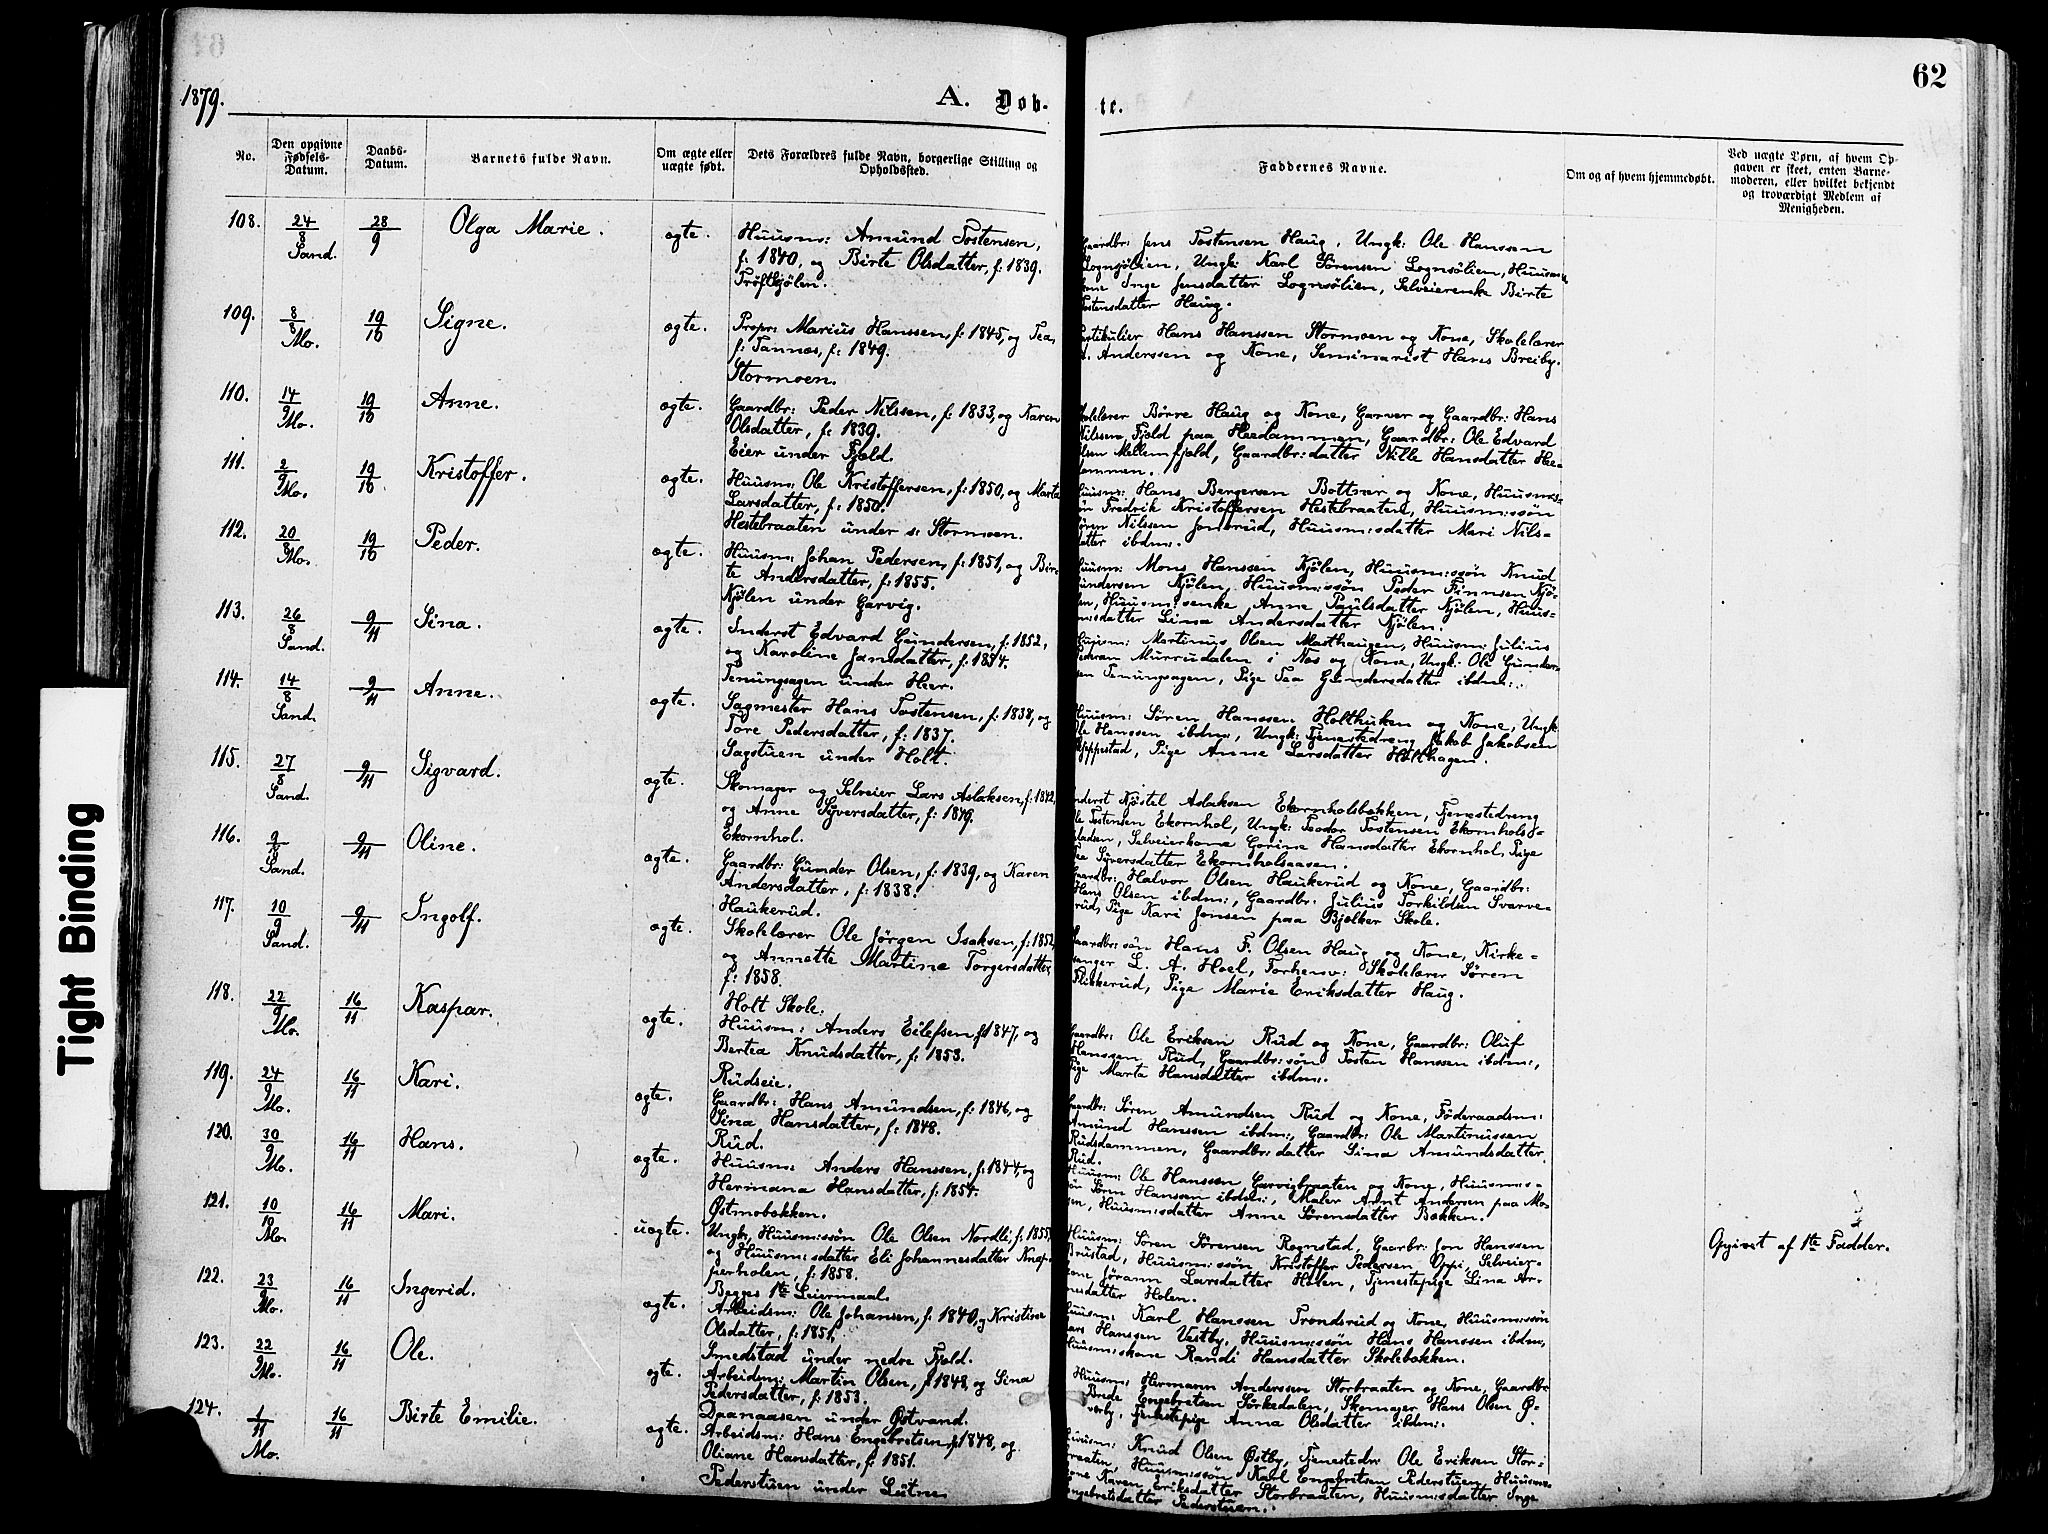 62
1879.
A. Døb-
te.
No.
Den opgivne Fødsels-Datum.
Daabs-Datum.
Barnets fulde Navn.
Om ægte eller uægte født.
Dets Forældres fulde Navn, borgerlige Stilling og Opholdssted.
Faddernes Navne.
Om og af hvem hjemmedøbt.
Ved uægte Børn, af hvem Op-
gaven er skeet, enten Barne-
moderen, eller hvilket bekjendt
og troværdigt Medlem af
Menigheden.
108. 24/8 Sand. 28/9 Olga Marie. ægte.
Huusm: Amund Tostensen,
f: 1840, og Birte Olsdatter, f: 1839.
Trøftkjølen.
Gaardbr: Jens Tostensen Haug, Ungk: Ole Hanssen
Lognsjølien, Ungk: Karl Sørensen Lognsølien, Huusm
kone Inge Jensdatter Lognsølien, Selveierenke Birte
Tostensdatter Haug.
109. 8/8 Mo. 19/10 Signe. ægte.
Propr: Marius Hanssen, f: 1845, og Tea,
f: Tannæs, f: 1849.
Stormoen.
Partikulier Hans Hanssen Stormoen og Kone, Skolelærer
Anderssen og Kone, Seminarist Hans Breiby.
110. 14/9 Mo. 19/10 Anne. ægte.
Gaardbr: Peder Nilssen, f: 1833, og Karen
Olsdatter, f: 1839.
Eier under Fjeld.
Skolelærer Børre Haug og Kone, Garver og Gaardbr: Hans
Nilssen Fjeld paa Heedammen, Gaardbr: Ole Edvard
Olsen Mellemfjeld, Gaardbr:datter Nille Hansdatter Hee-
dammen.
111. 2/9 Mo. 19/10 Kristoffer. ægte.
Huusm: Ole Kristoffersen, f: 1850, og Marte
Larsdatter, f: 1850.
Hestebraaten under s: Stormoen.
Huusm: Hans Bergersen Bottner og Kone, Huusms-
søn Fredrik Kristoffersen Hestebraaten, Huusm:søn
Søren Nilssen Jonsrud, Huusm:sdatter Mari Nils-
datter ibdm:.
112. 20/8 Mo. 19/10 Peder. ægte.
Huusm: Johan Pedersen, f: 1851, og Bir-
te Andersdatter, f: 1855.
Kjølen under Garvig.
Huusm: Mons Hanssen Kjølen, Huusm:ssøn Knud
Gundersen Kjølen, Huusm:ssøn Peder Finnsen Kjø-
len, Huusm:senke Anne Paulsdatter Kjølen, Huus-
msdatter Lina Andersdatter Kjølen.
113. 26/8 Sand. 9/11 Sina. ægte.
Inderst Edvard Gundersen, f: 1852,
og Karoline Jansdatter, f: 1854.
Tenungsagen under Heer.
Huusm: Martinus Olsen Masthaugen, Huusm: Julius
Pedersen Murrudalen i Næs og Kone, Ungk: Ole Gunder-
sen Tenungsagen, Pige Tea Gundersdatter ibdm:.
114. 14/8 Sand. 9/11 Anne. ægte.
Sagmester Hans Tostensen, f: 1838, og
Tore Pedersdatter, f: 1837.
Sagstuen under Holt.
Huusm: Søren Hanssen Holthuken og Kone, Ungk
Ole Hanssen ibdm:, Ungk: Tjenestedreng Jakob Jakobsen
Oppustad, Pige Anne Larsdatter Holthagen.
115. 27/8 Sand. 9/11 Sigvard. ægte.
Skomager og Selveier Lars Aslaksen, f: 1842,
og Anne Syversdatter, f: 1849.
Ekornhol.
Inderst Kjøstel Aslaksen Ekornholsbækken, Tjenestedreng
Ole Tostensen Ekornhol, Ungk: Teodor Tostensen Ekornhols-
pladsen, Selveierkone Gorine Hansdatter Ekornhol, Pige
Syversdatter Ekornholsaasen.
116. 9/8 Sand. 9/11 Oline. ægte.
Gaardbr: Gunder Olsen, f: 1839, og Karen
Andersdatter, f: 1838.
Haukerud.
Gaardbr: Halvor Olsen Haukerud og Kone, Gaardbr:
Hans Olsen ibdm:, Gaardbr: Julius Torkildsen Svarve-
rud, Pige Kari Jonsen paa Bjælker Skole.
117. 10/9 Sand. 9/11 Ingolf. ægte.
Skolelærer Ole Jørgen Isaksen, f: 1852,
og Annette Martine Torgersdatter,
f: 1858.
Holt Skole.
Gaardbr:søn Hans F. Olsen Haug og Kone, Kirke-
sanger L. A. Hoel, Forhenv: Skolelærer Søren
Flikkerud, Pige Marie Eriksdatter Haug.
118. 22/9 Mo. 16/11 Kaspar. ægte.
Huusm: Anders Eilefsen, f: 1847, og
Bertea Knudsdatter, f: 1853.
Rudseie.
Gaardbr: Ole Eriksen Rud og Kone, Gaardbr: Oluf
Hanssen Rud, Gaardbr:søn Tosten Hanssen ibdm:,
Pige Marta Hansdatter ibdm:.
119. 24/9 Mo. 16/11 Kari. ægte.
Gaardbr: Hans Amundsen, f: 1846, og
Sina Hansdatter, f: 1848.
Rud.
Gaardbr: Søren Amundsen Rud og Kone, Føderaadsm:
Amund Hanssen ibdm:, Gaardbr: Ole Martinussen
Rudsdammen, Gaardbr:datter Sina Amundsdatter
Rud.
120. 30/9 Mo. 16/11 Hans. ægte.
Huusm: Anders Hanssen, f: 1844, og
Hermana Hansdatter, f: 1854.
Østmobækken.
Huusm: Ole Hanssen Garvigbraaten og Kone, Huusm:s-
søn Søren Hanssen ibdm:, Maler Arnt Andersen paa Mo-
en, Huusm:sdatter Anne Sørensdatter Bækken.
121. 10/10 Mo. 16/11 Mari. uægte.
Ungk, Huusm:ssøn Ole Olsen Nordli, f: 1855,
og Huusm:sdatter Eli Johannesdatter Knap-
perholen, f: 1858.
Begges 1te Leiermaal.
Huusm: Søren Sørensen Rognstad, Gaarbr: Jon Hanssen
Brustad, Huusm:ssøn Kristoffer Pedersen Oppi, Selveier-
kone Jørann Larsdatter Holen, Tjenestepige Lina Ar-
nesdatter Holen.
Opgivet af 1te Fadder.
122. 23/9 Mo. 16/11 Ingerid. ægte.
Arbeidsm: Ole Johansen, f: 1840, og Kristine
Olsdatter, f: 1851.
Smedstad under nedre Fjeld.
Huusm: Karl Hanssen Trondsrud og Kone, Huusm:ssøn
Lars Hanssen Vestby, Huusm:ssøn Hans Hanssen ibdm,
Huusm:skone Randi Hansdatter Skolebækken.
123. 22/9 Mo. 16/11 Ole. ægte.
Arbeidsm: Martin Olsen, f: 1848, og Sina
Pedersdatter, f: 1853.
Daanaasen under Østvand.
Huusm: Hermann Anderssen Storbraaten og Kone, Gaardbr
Brede Engebretsen Sørkedalen, Skomager Hans Olsen Ø-
verby, Tjenestepige Anna Olsdatter ibdm:.
124. 1/11 Mo. 16/11 Birte Emilie. ægte.
Arbeidsm: Hans Engebretsen, f: 1848, og
Oliane Hansdatter, f: 1851.
Pederstuen under Lütne
Huusm: Knud Olsen Østby, Tjenestedr Ole Eriksen Stor-
braaten, Huusm:ssøn Karl Engebretsen Pederstuen, Huusm:
kone Karen Eriksdatter Storbraaten, Huusm:sdatter Inge
Engebretsdatter Pederstuen.
Tight Binding